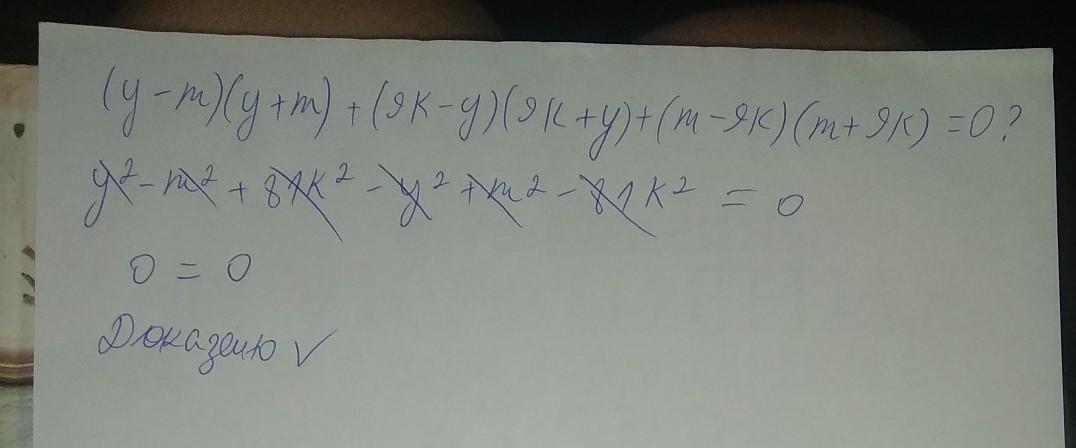 (y-m)(y+m)+(9k-y)(9k+y)+(m-9k)(m+9k)=0?
y²-m²+81k²-y²+m²-81k²=0
0=0
Доказано ✓